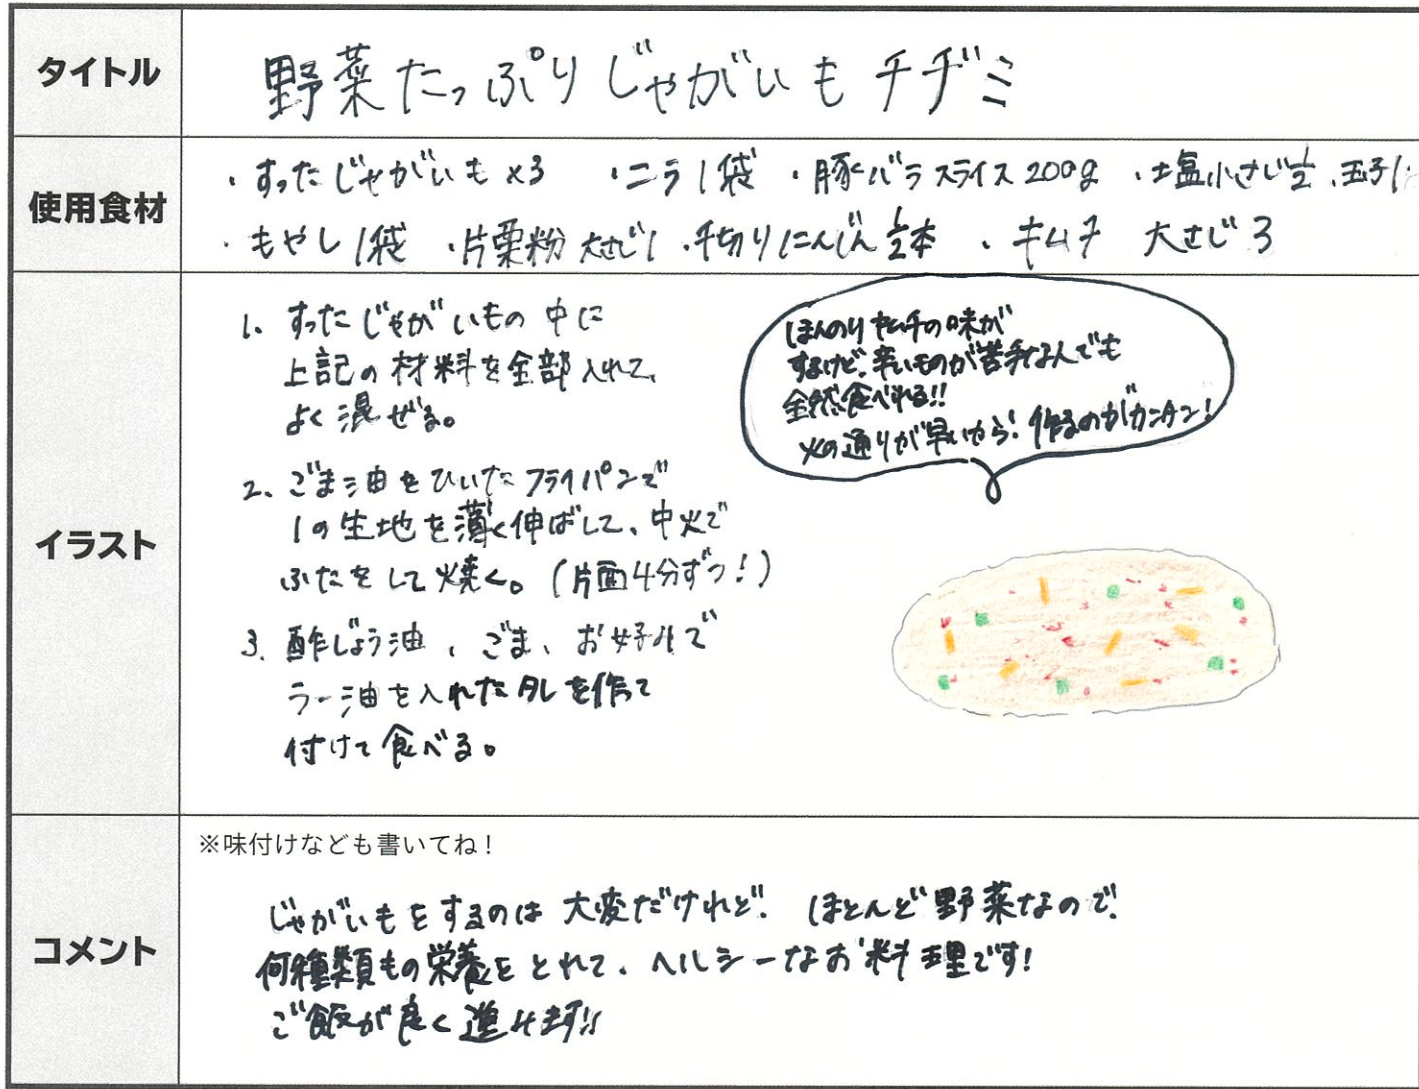 タイトル
野菜たっぷりじゃがいもチヂミ
使用食材
・すったじゃがいも×3 ・ニラ1袋 ・豚バラスライス200g ・塩小さじ1/2 ・玉子1
・もやし1袋 ・片栗粉 大さじ1 ・千切りにんじん1/2本 ・キムチ 大さじ3
イラスト
1. すったじゃがいもの中に
上記の材料を全部入れて、
よく混ぜる。
2. ごま油をひいたフライパンで
1の生地を薄く伸ばして、中火で
ふたをして焼く。(片面4分ずつ!)
3. 酢じょう油、ごま、お好みで
ラー油を入れたタレを作って
付けて食べる。
ほんのりキムチの味が
するけど、辛いものが苦手な人でも
全然食べれる!!
火の通りが早いから!作るのがカンタン!
コメント
※味付けなども書いてね!
じゃがいもをするのは大変だけれど、ほとんど野菜なので、
何種類もの栄養をとれて、ヘルシーなお料理です!
ご飯が良く進みます!!